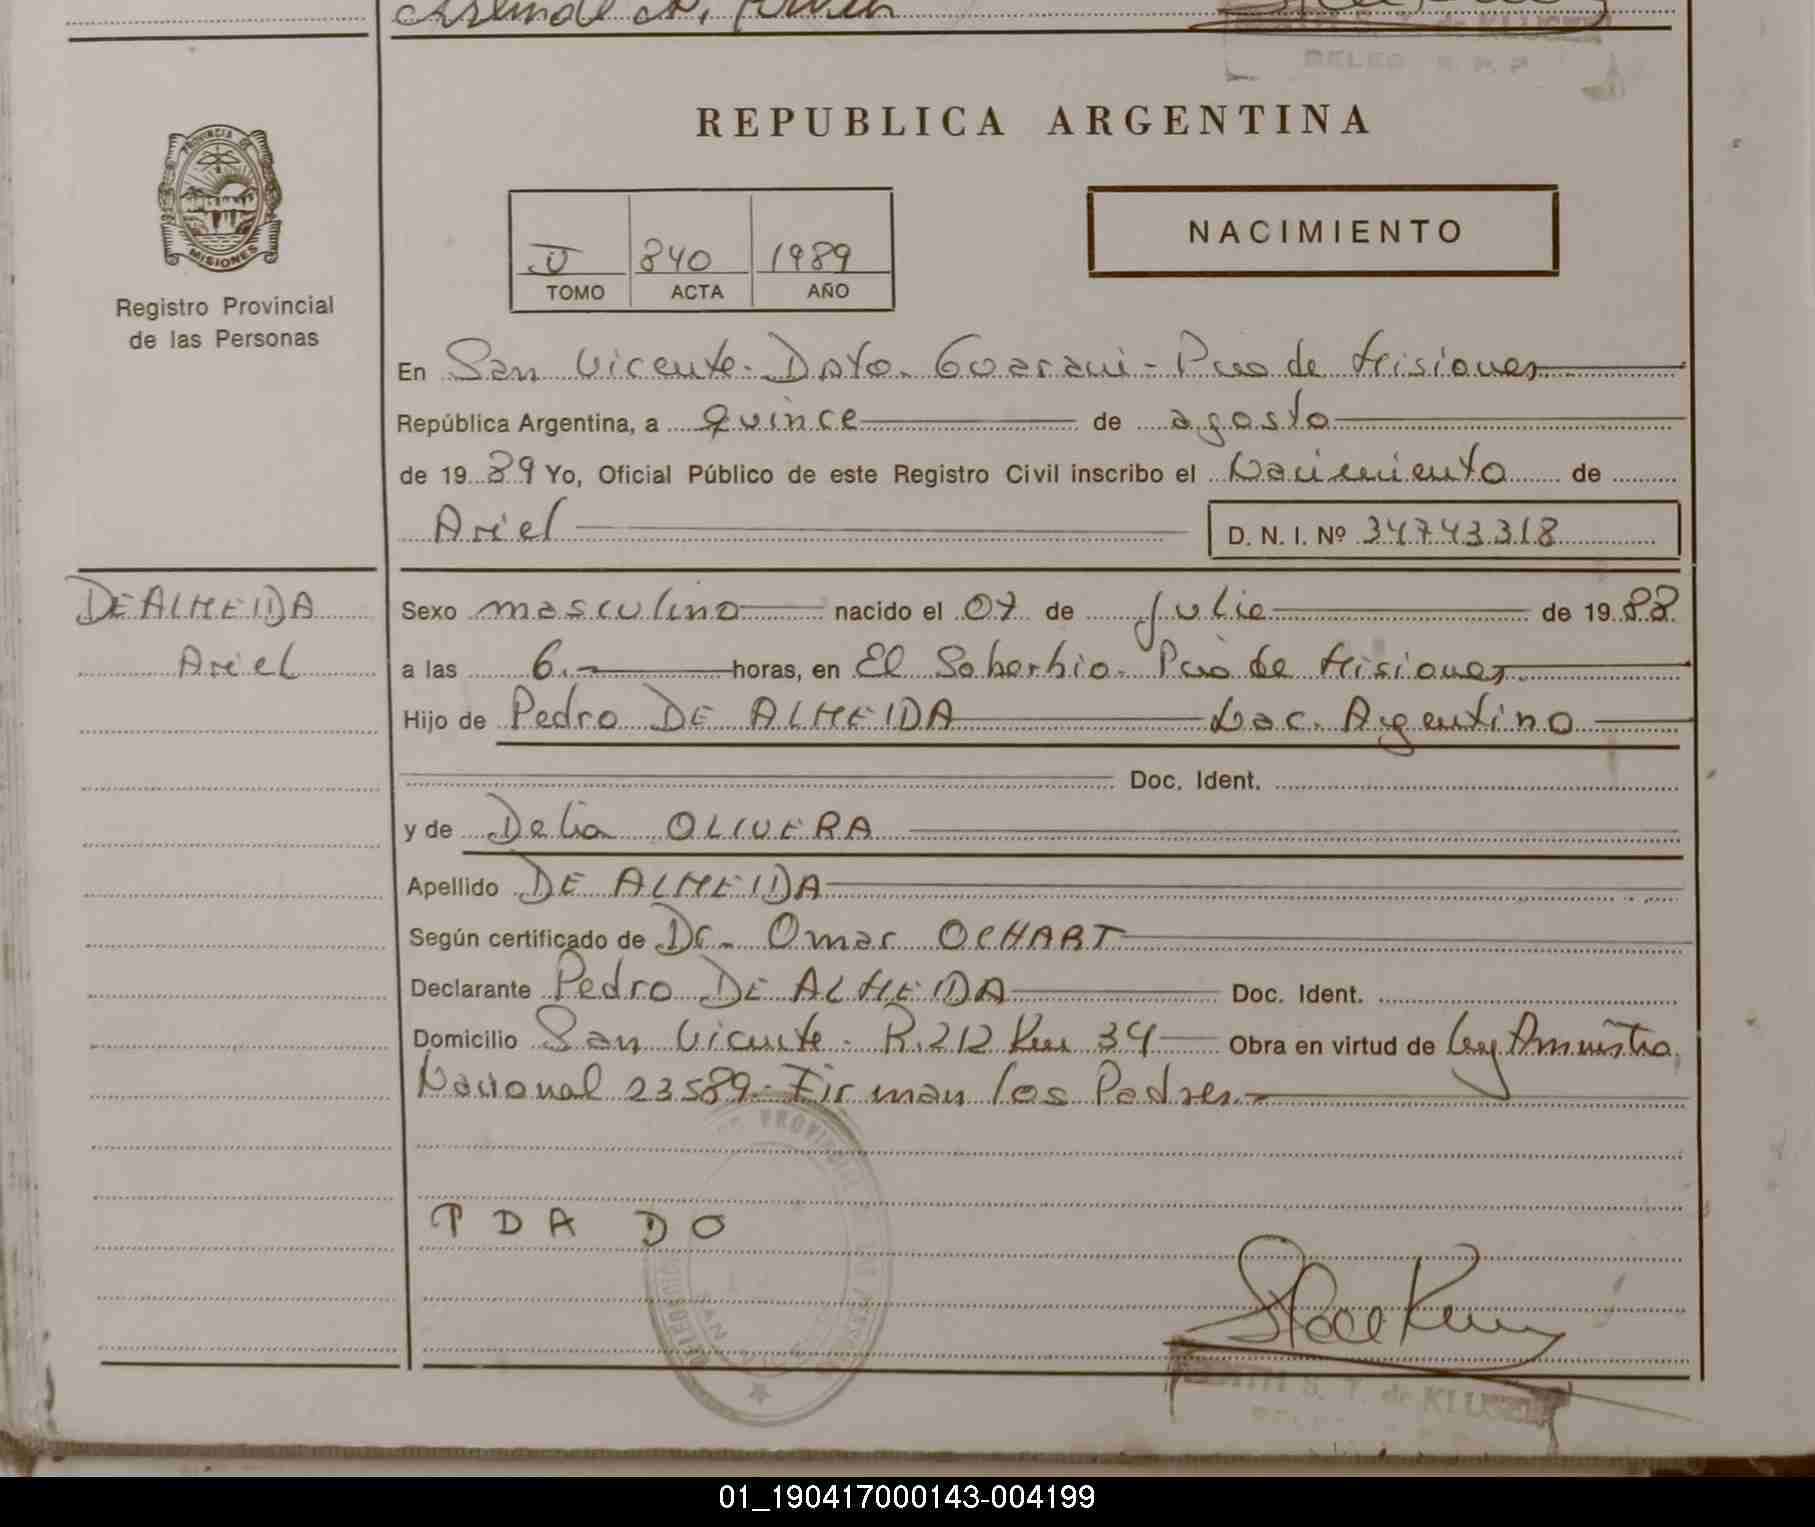 REPUBLICA ARGENTINA
PROVINCIA DE
MISIONES
Registro Provincial
de las Personas
840 1989
TOMO ACTA AÑO
NACIMIENTO
En San Vicente - Dpto. Guaraní - Pcia de Misiones
República Argentina, a quince de agosto
de 19 89 Yo, Oficial Público de este Registro Civil inscribo el Nacimiento de
Ariel D. N. I. Nº 34743318
DE ALMEIDA
Ariel
Sexo masculino nacido el 07 de Julio de 19 88
a las 6.- horas, en El Soberbio - Pcia de Misiones
Hijo de Pedro DE ALMEIDA Nac. Argentino
Doc. Ident.
y de Delia OLIVERA
Apellido DE ALMEIDA
Según certificado de Dr. Omar OCHART
Declarante Pedro DE ALMEIDA Doc. Ident.
Domicilio San Vicente - R.212 Km 34 Obra en virtud de Ley
Nacional 23589 - Firman los Padres.-
P D A D O
S. T. de KLUGE
01_190417000143-004199